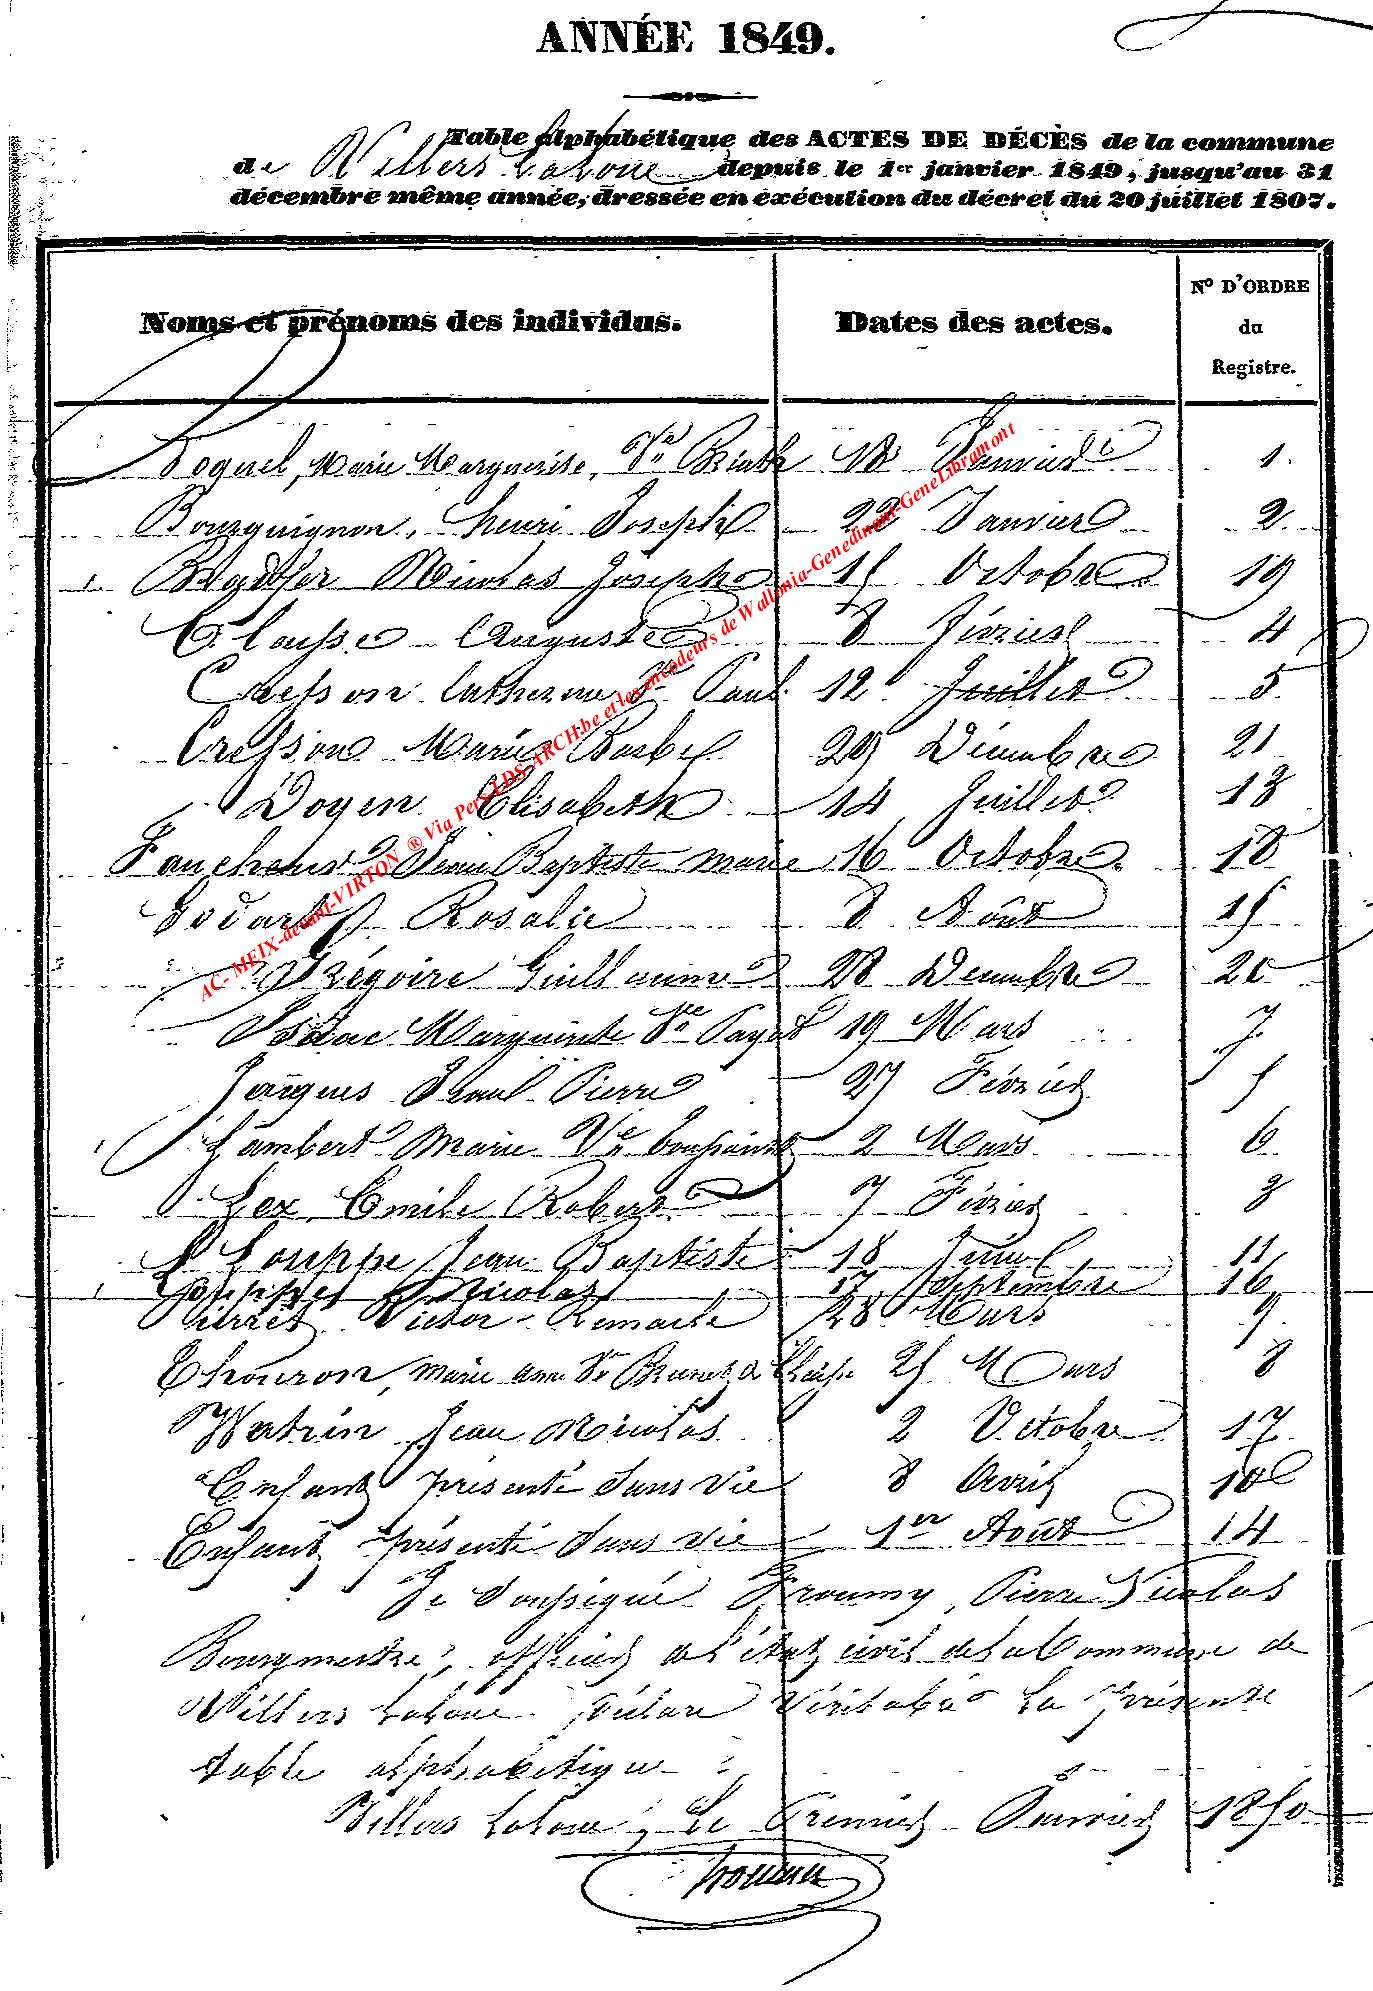 ANNÉE 1849.
Table alphabétique des ACTES DE DÉCÈS de la commune
de Villers LaLoue depuis le 1er janvier 1849, jusqu'au 31
décembre même année, dressée en exécution du décret du 20 juillet 1807.
Noms et prénoms des individus. Dates des actes. No D'ORDRE du Registre.
Marie Marguerite, Ve 18 Janvier 1
Bourguignon, henri Joseph 22 Janvier 2
Nicolas Joseph 15 Octobre 19
Clausse Auguste 8 Février 4
Cresson Catherine Ve Paul 12 Juillet
Cresson Marie 29 Décembre 21
Doyen Elisabeth 14 Juillet 13
Jean Baptiste marie 16 Octobre 18
Godart Rosalie 8 Août 15
Grégoire Guillaume 28 Decembre 20
Marguerite Ve 19 Mars 7
Jacques Paul Pierre 27 Février 5
Lambert Marie Ve Toussaint 2 Mars 6
Lex Emile Robert 7 Février 3
Louppe Jean Baptiste 18 11
Louppe Nicolas 17 Septembre 16
Pierret Victor Remacle 28 Mars 9
Thouron, marie anne Ve 25 Mars 8
Watrin Jean Nicolas 2 Octobre 17
Enfant présenté sans vie 8 Avril 10
Enfant présenté sans vie 1er Août 14
Je soussigné Froumy, Pierre Nicolas
Bourgmestre, officier de l'état civil de la Commune de
Villers LaLoue déclare véritable la présente
table alphabétique
Villers LaLoue, Le Premier Janvier 1850
Froumy
AC- MEIX-devant-VIRTON ® Via Pers LDS-ARCH.be et les encodeurs de Wallonia-Genedinant-GeneLibramont